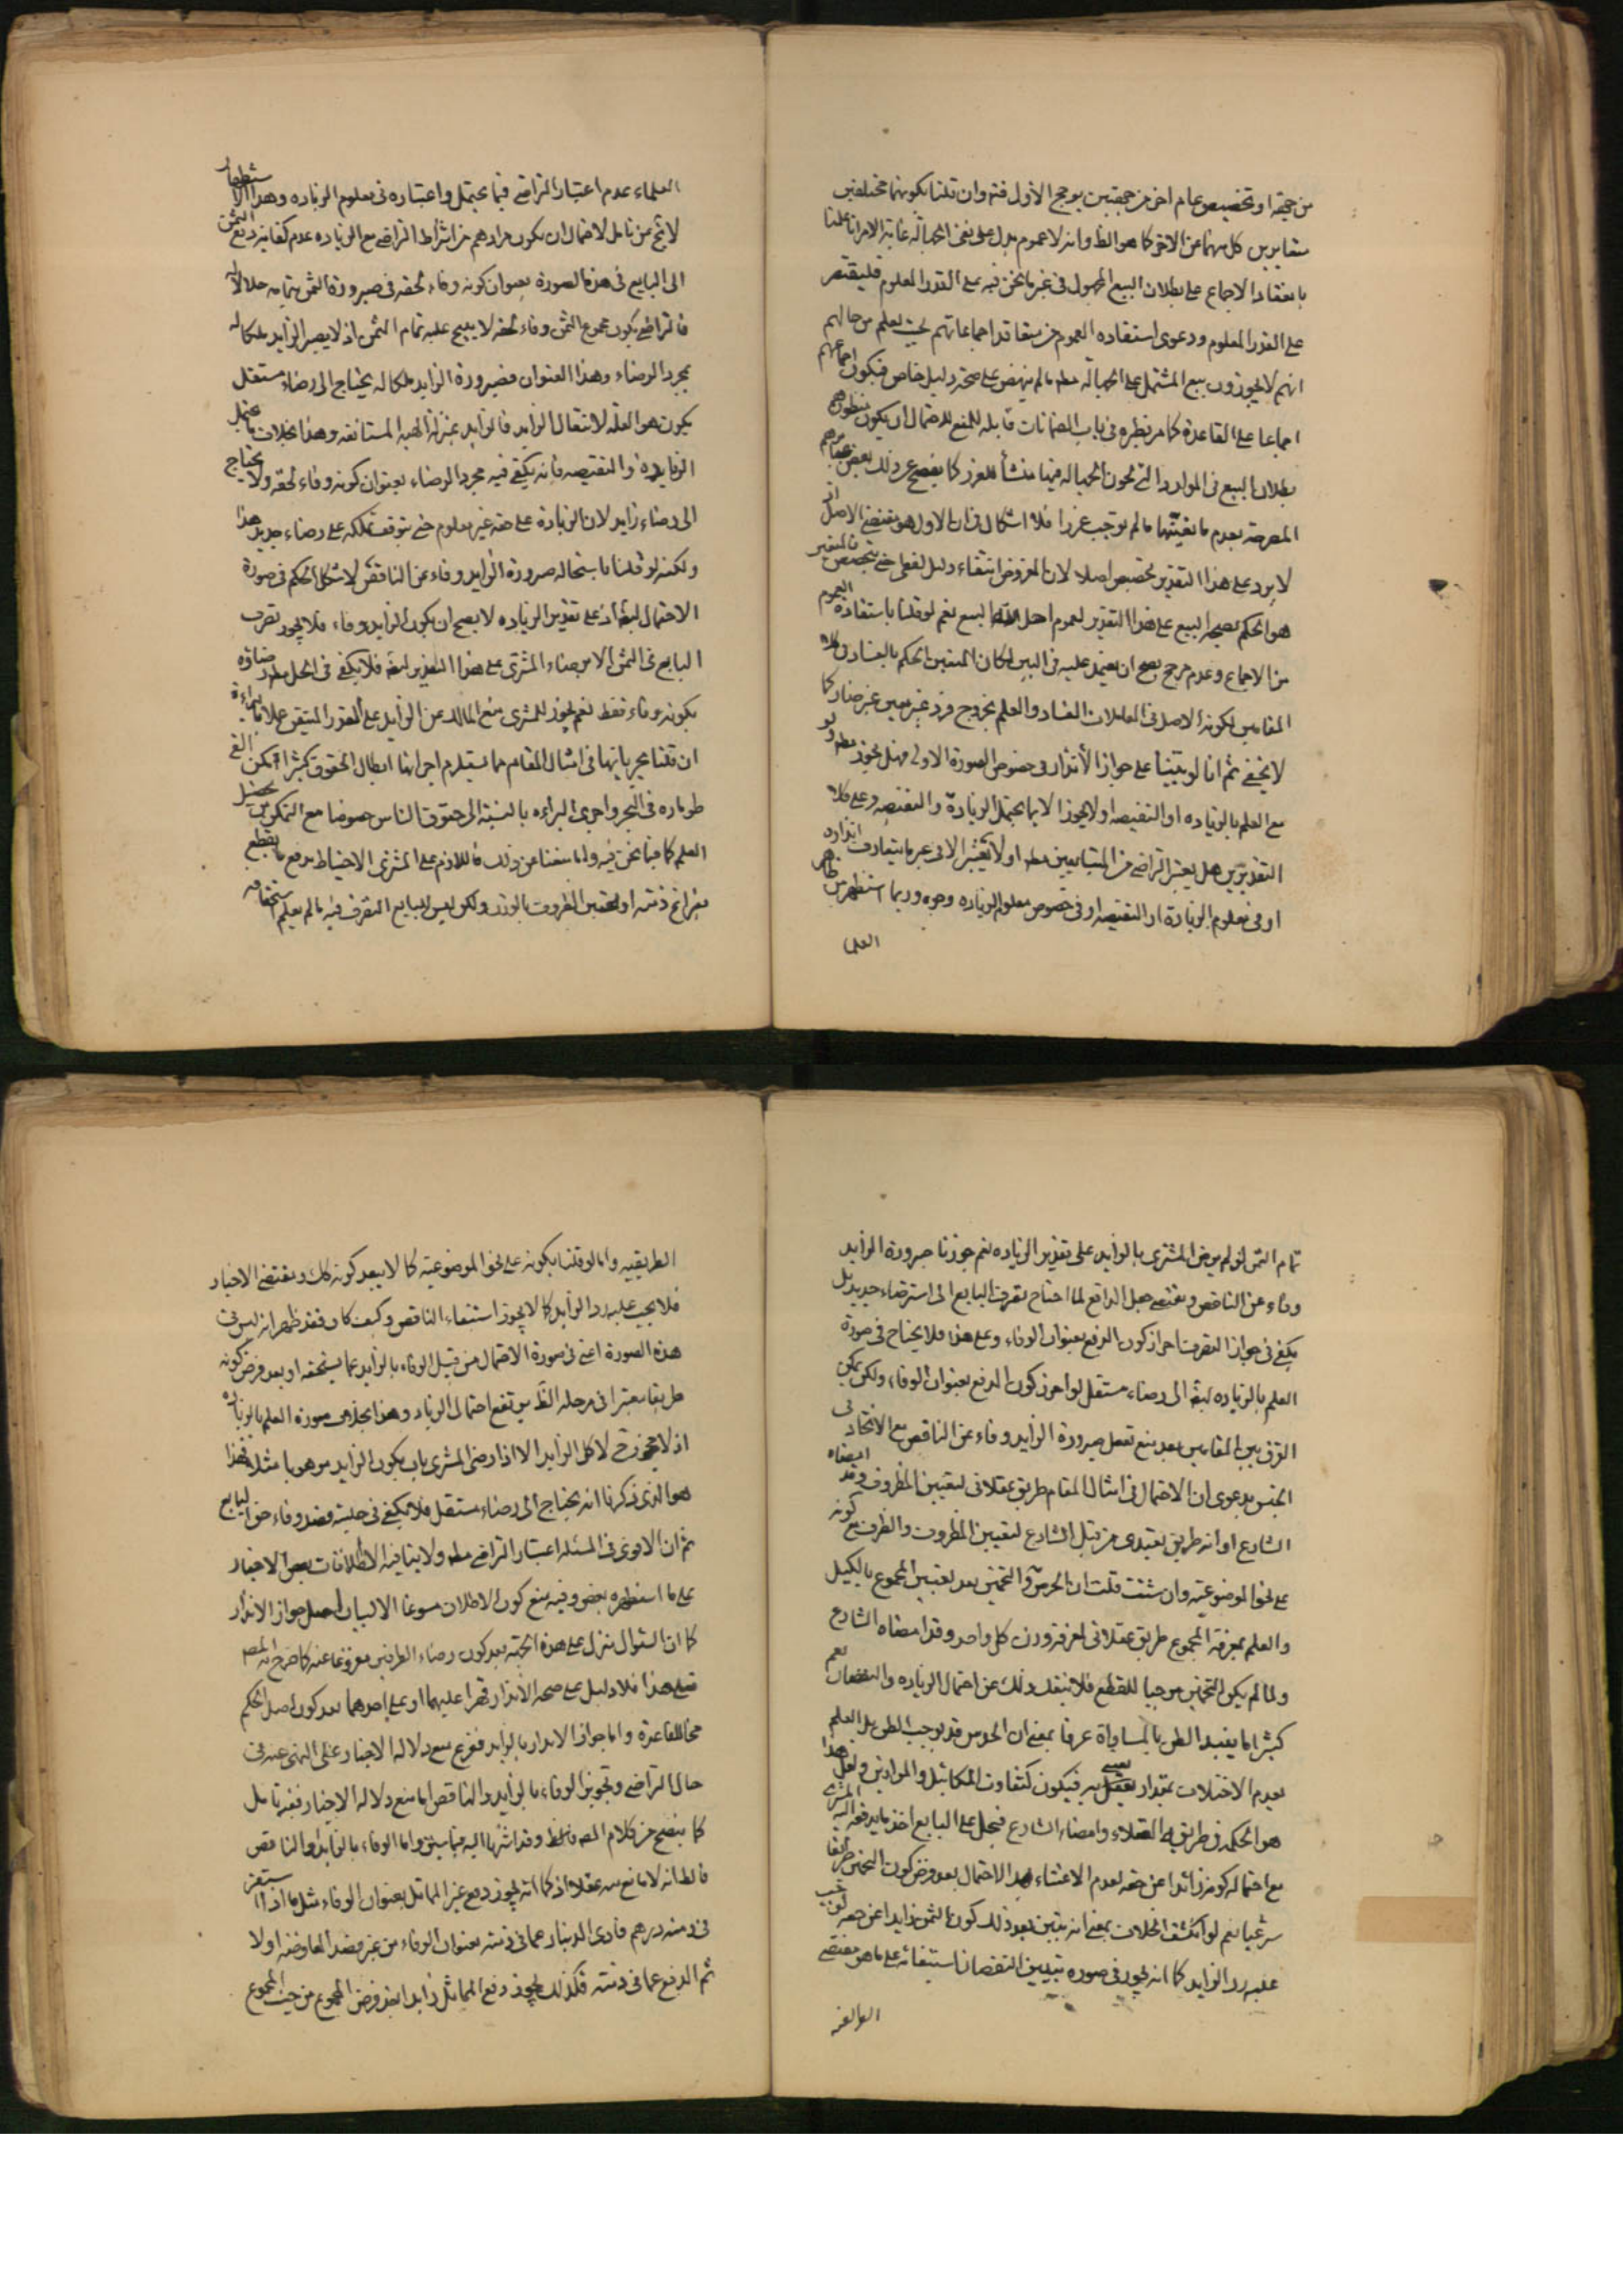 من جهة او تخصيص عام اخر من جهتين يوجح الاول فته وان قلنا بكونهما مختلفين
متغايرين كل منهما عن الاخر كما هو الظ وانه لا عموم يدل على نفى الجهالة غاية الامر انا علمنا
بانعقاد الاجماع على بطلان البيع المجهول فى غير ما نحن فيه على القدر المعلوم فليقتصر
على القدر المعلوم ودعوى استفاده العموم من معاقد اجماعاتهم بحيث يعلم من حالهم
انهم لا يجوزون بيع المشتمل على الجهالة مطه ما لم ينهض على صحته دليل خاص فيكون اجماعهم
اجماعا على القاعدة كما مر نظيره فى باب الضمانات قابله للمنع لاحتمال ان يكون منظورهم
بطلان البيع فى الموارد التى تكون الجهالة فيها منشأ للغرر كما يفصح عن ذلك بعض عبائرهم
المصرحة بعدم مانعيتها ما لم توجب غررا فلا اشكال فى ان الاول هو مقتضى الاصل اذ
لا يرد على هذا التقدير تخصيص اصلا لان المفروض انتفاء دليل لفظى حتى يتخصص فالمتعين
هو الحكم بصحة البيع على هذا التقدير لعموم احل الله البيع نعم لو قلنا باستفادة العموم
من الاجماع وعدم مرجح يصح ان يعتمد عليه فى البين لكان المتعين الحكم بالفساد فى كلا
المقامين لكونه الاصل فى المعاملات الفساد والعلم بخروج فرد غير معين غير ضار كما
لا يخفى ثم انا لو بنينا على جواز الأندار فى خصوص الصورة الاولى فهل يجوز مطه ولو
مع العلم بالزياده او النقيصه او لا يجوز الا بما يحتمل الزيادة والنقيصه وعلى كلا
التقديرين هل يعتبر التراضى من المتبايعين مطه او لا يعتبر الا فى غير ما يتعارف انداره
او فى معلوم الزيادة او النقيصه او فى خصوص معلوم الزياده وجوه وربما استظهر من ظاهر
العلما
العلماء عدم اعتبار التراضى فيما يحتمل واعتباره فى معلوم الزياده وهذا الاستظهار
لا يخ عن تامل لاحتمال ان يكون مرادهم من اشتراط التراضى مع الزياده عدم كفاية دفع الثمن
الى البايع فى هذه الصورة بعنوان كونه وفاء لحقه فى صيرورة الثمن بتمامه حلالا له
فالتراضى بكون مجموع الثمن وفاء لحقه لا يبيح عليه تمام الثمن اذ لا يصير الزايد ملكا له
بمجرد الرضاء وهذا العنوان فصيرورة الزايد ملكا له يحتاج الى رضاء مستقل
يكون هو العلة لانتقال الزايد فالزايد بمنزلة الهبه المستانفه وهذا بخلاف ما يحتمل
الزياده والنقيصه فانه يكفى فيه مجرد الرضاء بعنوان كونه وفاء لحقه ولا يحتاج
الى رضاء زايد لان الزيادة على حقه غير معلوم حتى يتوقف تملكه على رضاء جديد هذا
ولكنه لو قلنا باستحاله صيرورة الزايد وفاء عن الناقص لاشكل الحكم فى صورة
الاحتمال ايضا اذ على تقدير الزياده لا يصح ان يكون الزايد وفاء فلا يجوز تصرف
البايع فى الثمن الا مع رضاء المشترى على هذا التقدير ايضا فلا يكفى فى الحل مطه رضاؤه
بكونه وفاء فقط نعم يجوز للمشترى منع المالك عن الزايد على القدر المتيقن عملا بالبراءة
ان قلنا بجريانها فى امثال المقام مما يستلزم اجرائها ابطال الحقوق كثيرا
طوماره فى البحر واجرى البراءه بالنسبة الى حقوق الناس خصوصا مع التمكن من تحصيل
العلم كما فيما نحن فيه واما منعنا عن ذلك فاللازم على المشترى الاحتياط بدفع ما يقطع
بفراغ ذمته او تعيين المظروف بالوزن ولكن ليس للبايع التصرف فيه ما لم يعلم استحقاقه
تمام الثمن لو لم يرض المشترى بالزايد على تقدير الزياده نعم جوزنا صيرورة الزايد
وفاء عن الناقص وبمقتضى جعل الدافع لما احتاج تصرف البايع الى استرضاء جديد بل
يكفى فى جواز التصرف احراز كون الدفع بعنوان الوفاء وعلى هذا فلا يحتاج فى صورة
العلم بالزياده ايضا الى رضاء مستقل لو احرز كون الدفع بعنوان الوفاء ولكن يمكن
الفرق بين المقامين بعد منع تعقل صيرورة الزايد وفاء عن الناقص مع الاتحاد فى
الجنس بدعوى ان الاحتمال فى امثال المقام طريق عقلائى لتعيين المظروف وقد امضاه
الشارع او انه طريق تعبدى من قبل الشارع لتعيين المظروف والظرف مع كونه
على نحو الموضوعية وان شئت قلت ان الحدس والتخمين بعد تعيين المجموع بالكيل
والعلم بمعرفة المجموع طريق عقلائى لمعرفة وزن كل واحد وقد امضاه الشارع
ولما لم يكن التخمين موجبا للقطع فلا ينفك ذلك عن احتمال الزياده والنقصان نعم
كثيرا ما يفيد الظن بالمساواة عرفا بمعنى ان الحدس قد يوجب الظن بل العلم
بعدم الاختلاف بمقدار يعتنى به فيكون كتفاوت المكائيل والموازين ولعل هذا
هو الحكمة فى طريقية العقلاء وامضاء الشارع فيحل على البايع اخذ ما يدفعه اليه المشترى
مع احتماله كونه زائدا عن حقه لعدم الاعتناء بهذا الاحتمال بعد فرض كون التخمين طريقا
شرعيا نعم لو انكشف الخلاف بمعنى انه تبين بعد ذلك كون الثمن زايدا عن حقه لوجب
عليه رد الزايد كما انه يجوز فى صورة تبين النقصان استيفائه على ما هو مقتضى
الطريقيه واما لو قلنا بكونه على نحو الموضوعية كما لا يبعد كونه كك وبمقتضى الاخبار
فلا يجب عليه رد الزايد كما لا يجوز استيفاء الناقص وكيف كان فقد ظهر انه ليس فى
هذه الصورة اعنى فى صورة الاحتمال من قبيل الوفاء بالزايد عما يستحقه او بعد فرض كونه
طريقا معتبرا فى مرحلة الظ يرتفع احتمال الزياد وهذا بخلاف صورة العلم بالزياده
اذ لا يجوز ح لاكل الزايد الا اذا رضى المشترى بان يكون الزايد موهوبا مثلا فهذا
هو الذى ذكرنا انه يحتاج الى رضاء مستقل فلا يكفى فى حليته قصد وفاء حق البايع
ثم ان الاقوى فى المسئله اعتبار التراضى مطه ولا ينافيه الاطلاقات بعض الاخبار
على ما استظهره بعض وفيه منع كون الاطلاق مسوقا الا لبيان اصل جواز الاندار
كما ان السؤال منزل على هذه الجهة بعد كون رضاء الطرفين مفروغا عنه كما صرح به المصه
فعلى هذا فلا دليل على صحة الأندار قهرا عليهما او على احدهما بعد كون اصل الحكم
مخالفا للقاعدة واما جواز الاندار بالزايد فهو مع منع دلالة الاخبار على النهى عنه فى
حال التراضى وتجويز الوفاء بالزايد والناقص اما منع دلالة الاخبار ففيه تامل
كما يتضح من كلام المصه فلاحظ وقد اشرنا اليه فيما سبق واما الوفاء بالزايد والناقص
فالظ انه لا مانع منه عقلا اذ كما انه يجوز دفع غير المماثل بعنوان الوفاء مثل ما اذا استقر
فى ذمته درهم فادى الدينار عما فى ذمته بعنوان الوفاء من غير قصد المعاوضه اولا
ثم الدفع عما فى ذمته فكذلك يجوز دفع المماثل زايدا بفرض المجموع من حيث المجموع